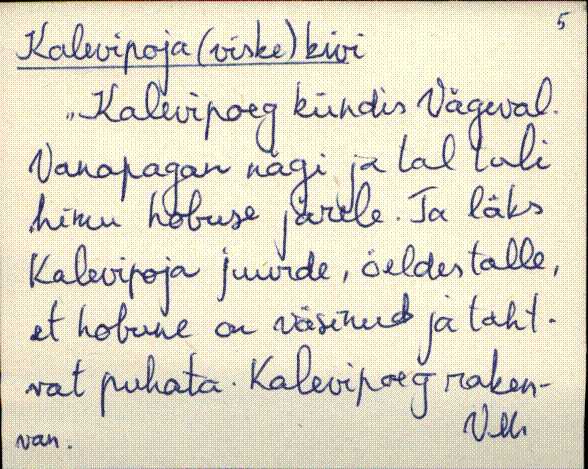 5
Kalevipoja (viske) kivi
„Kalevipoeg kündis Vägeval.
Vanapagan nägi ja tal tuli
himu hobuse järele. Ta läks
Kalevipoja juurde, öeldes talle,
et hobune on väsinud ja taht-
vat puhata. Kalevipoeg raken-
van.